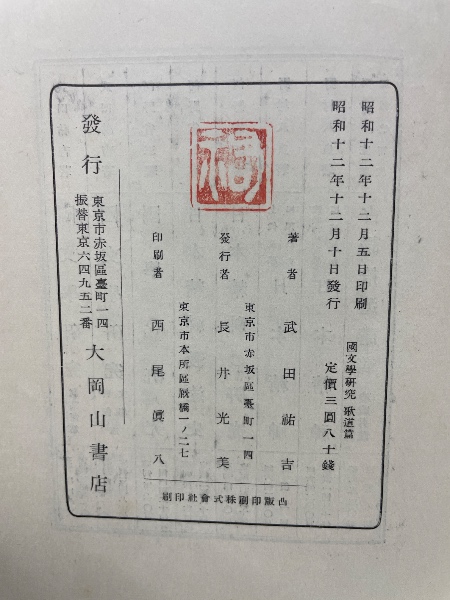 昭和十二年十二月五日印刷
昭和十二年十二月十日發行
國文學研究 歌道篇
定價三圓八十錢
著者 武田祐吉
東京市赤坂區臺町一四
發行者 長井光美
東京市本所區厩橋一ノ二七
印刷者 西尾眞八
發行
東京市赤坂區臺町一四
振替東京六四九五二番
大岡山書店
凸版印刷株式會社印刷